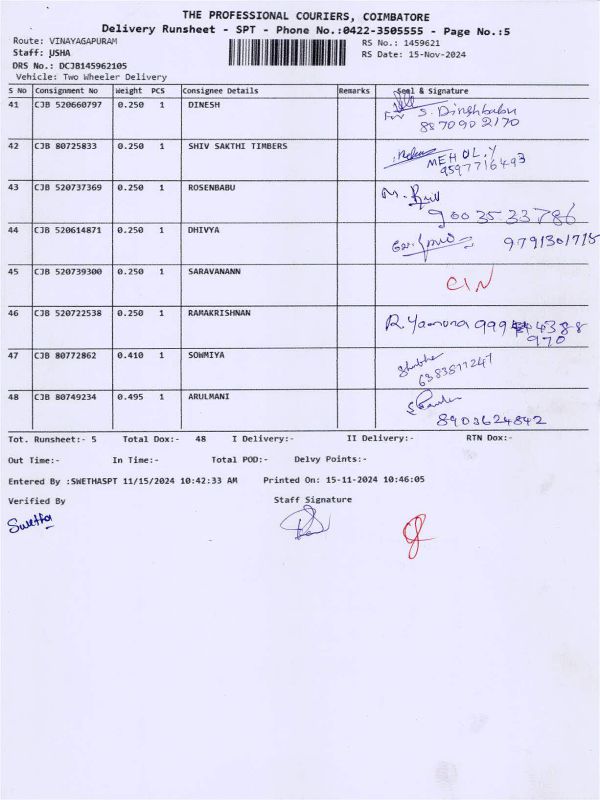 THE PROFESSIONAL COURIERS, COIMBATORE
Delivery Runsheet - SPT - Phone No.:0422-3505555 - Page No.:5
Route: VINAYAGAPURAM
RS No.: 1459621
Staff: USHA
RS Date: 15-Nov-2024
DRS No.: DCJB145962105
Vehicle: Two Wheeler Delivery
S No Consignment No Weight PCS Consignee Details Remarks Seal & Signature
41 CJB 520660797 0.250 1 DINESH For S. Dineshbabu
8870902170
42 CJB 80725833 0.250 1 SHIV SAKTHI TIMBERS MEHUL.Y
9597716493
43 CJB 520737369 0.250 1 ROSENBABU
9003533786
44 CJB 520614871 0.250 1 DHIVYA 9791301715
45 CJB 520739300 0.250 1 SARAVANANN CIN
46 CJB 520722538 0.250 1 RAMAKRISHNAN R. Yamuna 4388
970
47 CJB 80772862 0.410 1 SOWMIYA
6383811247
48 CJB 80749234 0.495 1 ARULMANI
8903624842
Tot. Runsheet:- 5 Total Dox:- 48 I Delivery:- II Delivery:- RTN Dox:-
Out Time:- In Time:- Total POD:- Delvy Points:-
Entered By :SWETHASPT 11/15/2024 10:42:33 AM Printed On: 15-11-2024 10:46:05
Verified By Staff Signature
Swetha